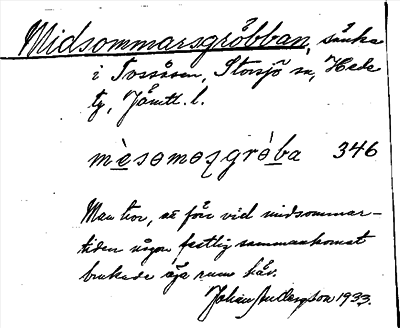 Midsommarsgröbban, sänka
i Tossåsen, Storsjö sn, Hede
tg, Jämtl. l.
mèsəmaʂgrò̱ba 346
Man tror, att förr vid midsommar-
tiden någon festlig sammankomst
brukade äga rum här.
Johan Andersson 1933.